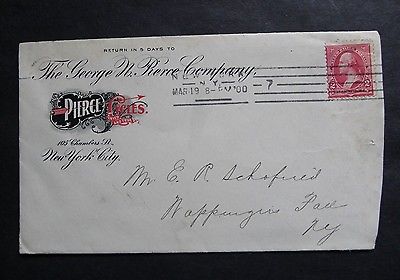 RETURN IN 5 DAYS TO
The George N. Pierce Company,
PIERCE CYCLES.
105 Chambers St.,
New York City.
N.Y.
MAR 19 8- PM 00
7
Mr. E. P. Schofield
Wappingers Fall
NY